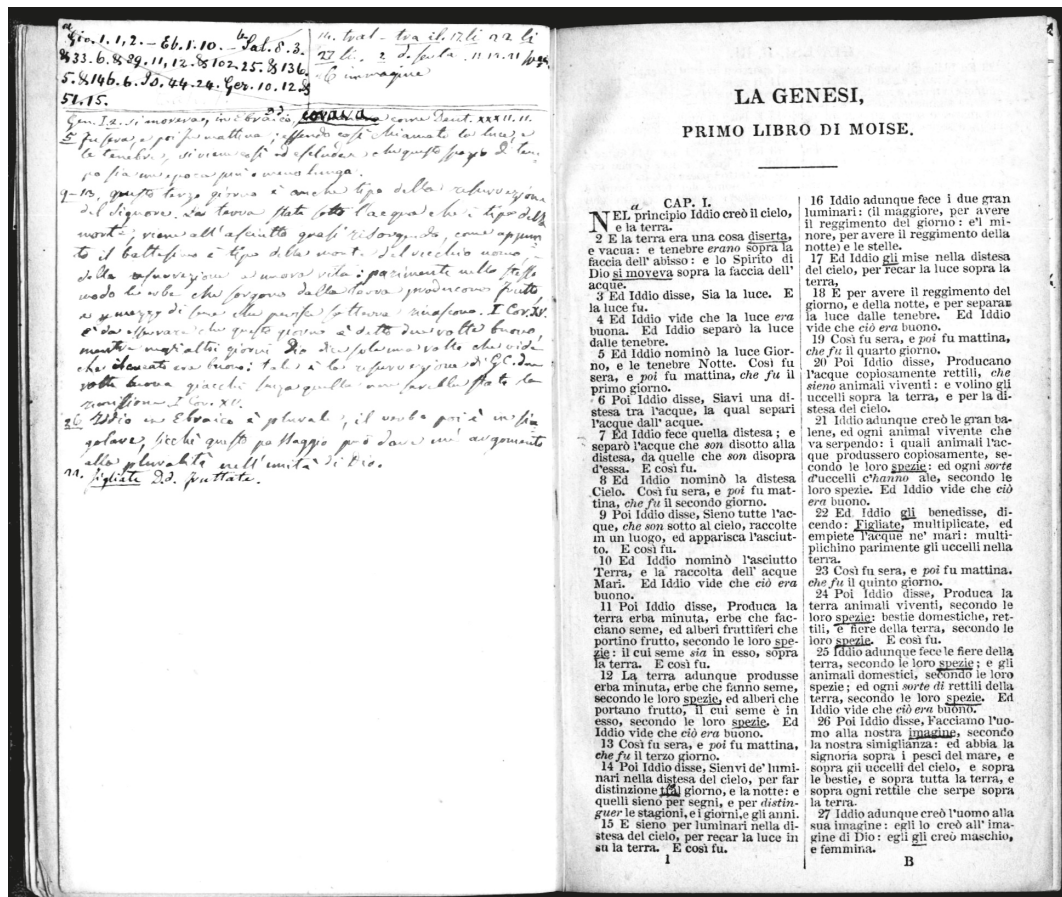 a
Gio. 1. 1, 2. – Eb. 1. 10. – b Sal. 8. 3.
& 33. 6. & 89. 11, 12. & 102. 25. & 136.
5. & 146. 6. Is. 44. 24. Ger. 10. 12. &
51. 15.
14. tral - tra il. 17. li 22 li
27 li.
26 immagine
Gen. I. 2. si moveva, in ebraico, covava come Deut. XXXII. 11.
5 fu sera, e poi fu mattina; essendo così chiamate la luce, e
le tenebre, si viene così ad escludere che questo spazio di tem-
po sia un epoca più o meno lunga.
9-13. questo terzo giorno è anche tipo della resurrezione
del Signore. La terra stata sotto l'acqua che è tipo della
morte; viene all'asciutto quasi risorgendo, come appun
to il battesimo è tipo della morte del vecchio uomo,
della resurrezione a nuova vita: parimente nello stesso
modo le erbe che sorgono dalla terra producono frutto
a mezzo di seme che rinascono. I Cor. XV.
È da osservare che questo giorno è detto due volte buono
mentre negli altri giorni Dio dice solo una volta che vide
che era buono: tale è la resurrezione di G.C. due
volte buona giacchè senza quella non sarebbe stata la
remissione I Cor. XV.
26 Iddio in Ebraico è plurale, il verbo poi è in sin
golare, sicchè questo passaggio può dare un argomento
alla pluralità nell'unità di Dio.
22. figliate D.d. fruttate.
LA GENESI,
PRIMO LIBRO DI MOISE.
a
CAP. I.
NEL principio Iddio creò il cielo,
e la terra.
2 E la terra era una cosa diserta,
e vacua: e tenebre erano sopra la
faccia dell' abisso: e lo Spirito di
Dio si moveva sopra la faccia dell'
acque.
3 Ed Iddio disse, Sia la luce. E
la luce fu.
4 Ed Iddio vide che la luce era
buona. Ed Iddio separò la luce
dalle tenebre.
5 Ed Iddio nominò la luce Gior-
no, e le tenebre Notte. Così fu
sera, e poi fu mattina, che fu il
primo giorno.
6 Poi Iddio disse, Siavi una di-
stesa tra l'acque, la qual separi
l'acque dall' acque.
7 Ed Iddio fece quella distesa; e
separò l'acque che son disotto alla
distesa, da quelle che son disopra
d'essa. E così fu.
8 Ed Iddio nominò la distesa
Cielo. Così fu sera, e poi fu mat-
tina, che fu il secondo giorno.
9 Poi Iddio disse, Sieno tutte l'ac-
que, che son sotto al cielo, raccolte
in un luogo, ed apparisca l'asciut-
to. E così fu.
10 Ed Iddio nominò l'asciutto
Terra, e la raccolta dell' acque
Mari. Ed Iddio vide che ciò era
buono.
11 Poi Iddio disse, Produca la
terra erba minuta, erbe che fac-
ciano seme, ed alberi fruttiferi che
portino frutto, secondo le loro spe-
zie: il cui seme sia in esso, sopra
la terra. E così fu.
12 La terra adunque produsse
erba minuta, erbe che fanno seme,
secondo le loro spezie, ed alberi che
portano frutto, il cui seme è in
esso, secondo le loro spezie. Ed
Iddio vide che ciò era buono.
13 Così fu sera, e poi fu mattina,
che fu il terzo giorno.
14 Poi Iddio disse, Sienvi de' lumi-
nari nella distesa del cielo, per far
distinzione tral giorno, e la notte: e
quelli sieno per segni, e per distin-
guer le stagioni, e i giorni, e gli anni.
15 E sieno per luminari nella di-
stesa del cielo, per recar la luce in
su la terra. E così fu.
1
16 Iddio adunque fece i due gran
luminari: (il maggiore, per avere
il reggimento del giorno: e'l mi-
nore, per avere il reggimento della
notte) e le stelle.
17 Ed Iddio gli mise nella distesa
del cielo, per recar la luce sopra la
terra,
18 E per avere il reggimento del
giorno, e della notte, e per separar
la luce dalle tenebre. Ed Iddio
vide che ciò era buono.
19 Così fu sera, e poi fu mattina,
che fu il quarto giorno.
20 Poi Iddio disse, Producano
l'acque copiosamente rettili, che
sieno animali viventi: e volino gli
uccelli sopra la terra, e per la di-
stesa del cielo.
21 Iddio adunque creò le gran ba-
lene, ed ogni animal vivente che
va serpendo: i quali animali l'ac-
que produssero copiosamente, se-
condo le loro spezie: ed ogni sorte
d'uccelli c'hanno ale, secondo le
loro spezie. Ed Iddio vide che ciò
era buono.
22 Ed Iddio gli benedisse, di-
cendo: Figliate, multiplicate, ed
empiete l'acque ne' mari: multi-
plichino parimente gli uccelli nella
terra.
23 Così fu sera, e poi fu mattina.
che fu il quinto giorno.
24 Poi Iddio disse, Produca la
terra animali viventi, secondo le
loro spezie: bestie domestiche, ret-
tili, e fiere della terra, secondo le
loro spezie. E così fu.
25 Iddio adunque fece le fiere della
terra, secondo le loro spezie; e gli
animali domestici, secondo le loro
spezie; ed ogni sorte di rettili della
terra, secondo le loro spezie. Ed
Iddio vide che ciò era buono.
26 Poi Iddio disse, Facciamo l'uo-
mo alla nostra imagine, secondo
la nostra simiglianza: ed abbia la
signoria sopra i pesci del mare, e
sopra gli uccelli del cielo, e sopra
le bestie, e sopra tutta la terra, e
sopra ogni rettile che serpe sopra
la terra.
27 Iddio adunque creò l'uomo alla
sua imagine: egli lo creò all' ima-
gine di Dio: egli gli creò maschio,
e femmina.
B